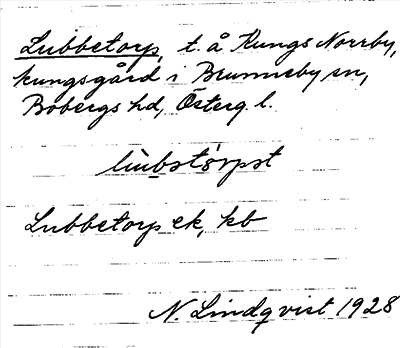 Lubbetorp, t. å Kungs Norrby,
kungsgård i Brunneby sn,
Bobergs hd, Österg. l.
lùb̥stórpst
Lubbetorp ek, kb
N. Lindqvist 1928